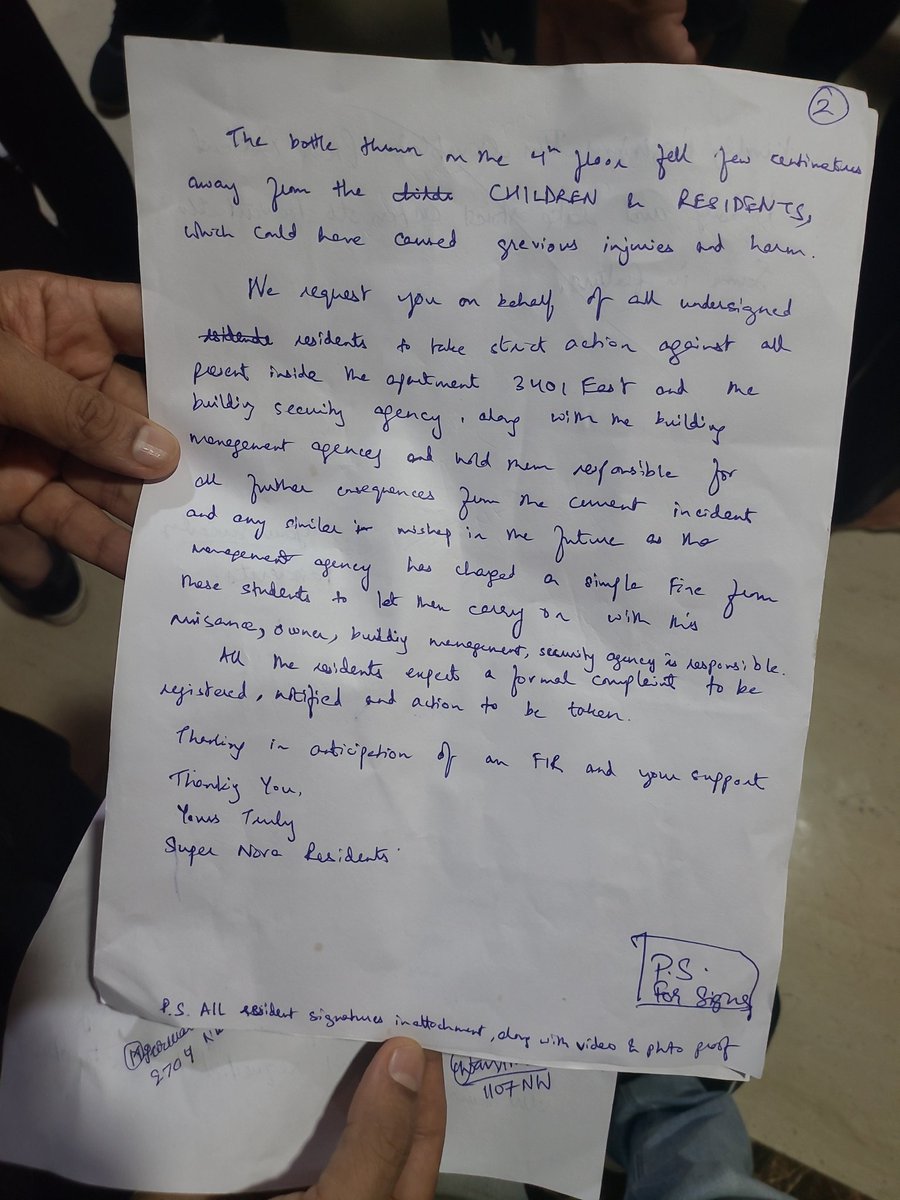 2
The bottle thrown on the 4th floor fell few centimeters
away from the CHILDREN & RESIDENTS,
which could have caused grevious injuries and harm.
We request you on behalf of all undersigned
residents to take strict action against all
present inside the apartment 3401 East and the
building security agency, along with the building
management agencies and hold them responsible for
all further consequences from the current incident
and any similar mishap in the future as the
management agency has charged a simple fine from
these students to let them carry on with this
nuisance, owner, building management, security agency is responsible.
All the residents expect a formal complaint to be
registered, notified and action to be taken.
Thanking in anticipation of an FIR and your support
Thanking You,
Yours Truly
Super Nova Residents
P.S.
For Signs
P.S. All resident signatures in attachment, along with video & photo proof
2704 NW
1107 NW